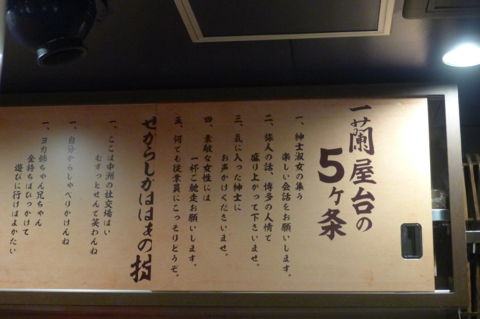 一蘭屋台の
5ヶ条
一、紳士淑女の集う
楽しい会話をお願いします。
二、旅人の話、博多の人情で
盛り上がって下さいませ。
三、気に入った紳士に
お声かけくださいませ。
四、素敵な女性には
一杯ご馳走お願いします。
五、何でも従業員にこっそりとうぞ。
せからしかばばあの技
一、ここは中洲の社交場ばい
むすっとせんで笑わんね
一、自分からしゃべりかけんね
一、ヨカ姉ちゃん兄ちゃん
金持はひっかけて
遊びに行けばよかたい